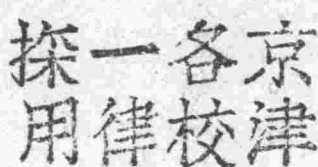 京津
各校
一律
探用